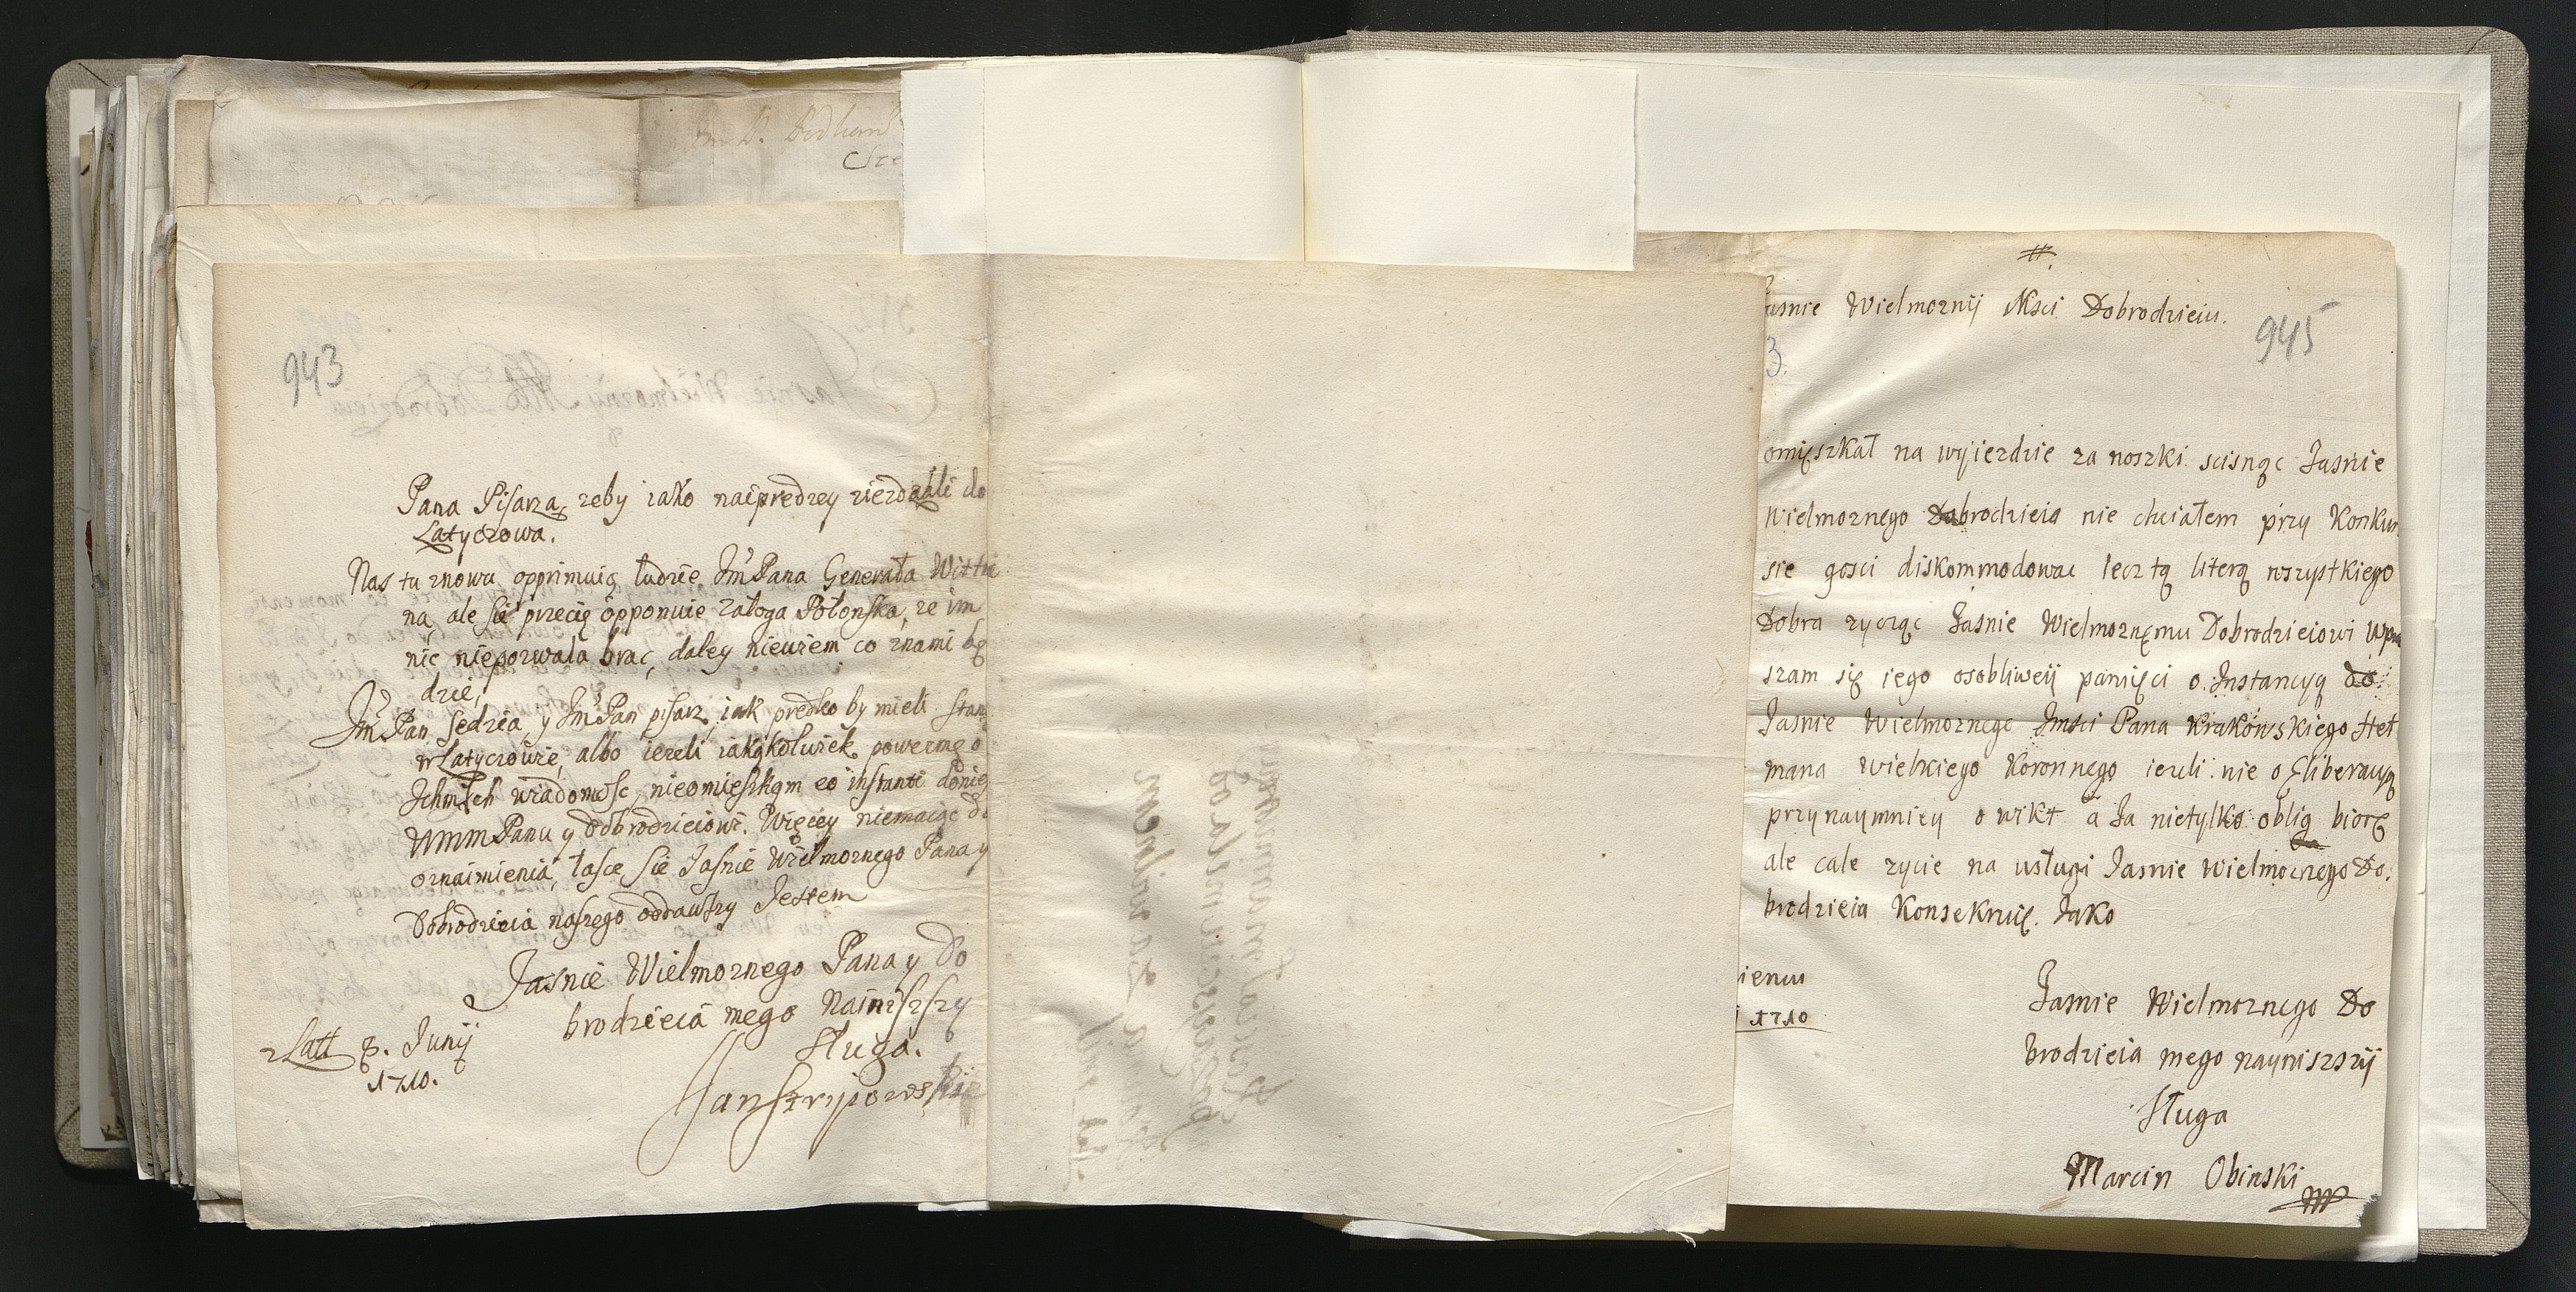 943
Pana Pisarza, zeby iako naipredzey ziezdzali do
Latyczowa.
Nas tu znowu opprimuią ludzie Jm Pana Generała Witti
na, ale sie przecię opponuie załoga Połonska, ze im
nic niepozwala brac, daley niewiem co znami bę
dzie,
Jm Pan Sedzia, y Jm Pan pisarz, iak predko by mieli stan
w Latyczowie, albo iezeli iakąkolwiek powezmę o
Ichmsch wiadomosc, nieomieszkam eo instanti donies
WMM Panu y Dobrodzieiowi. Więcey niemaiąc do
oznaimienia, łasce sie Jasnie Wielmoznego Pana y
Dobrodzieia naszego oddawszy Jestem
Jasnie Wielmoznego Pana y Do
brodzieia mego Nainiszszy
Sługa.
z Latt 8. Junij
1710.
945
asnie Wielmoznij Msci Dobrodzieiu.
3.
omięszkał na wyiezdzie za noszki scisnąc Jasnie
Wielmoznego Dobrodzieia nie chciałem przy Konkur
sie gosci diskommodowac lecz tą literą wszystkiego
Dobra zycząc Jasnie Wielmoznęmu Dobrodzieiowi Wpra
szam się iego osobliweij pamięci o Instancyą do
Jasnie Wielmoznego Jmsci Pana Krakowskiego Het
mana Wielkiego Koronnego iezeli nie o Eliberacyą
przynaymnięy o wikt a Ja nietylko oblig biorę
ale cale zycie na usługi Jasnie Wielmoznego Do
brodzieia Konsekruię. Jako
ieniu
1710
Jasnie Wielmoznego Do
brodzieia mego nayniszszij
Sługa
Marcin Obinski